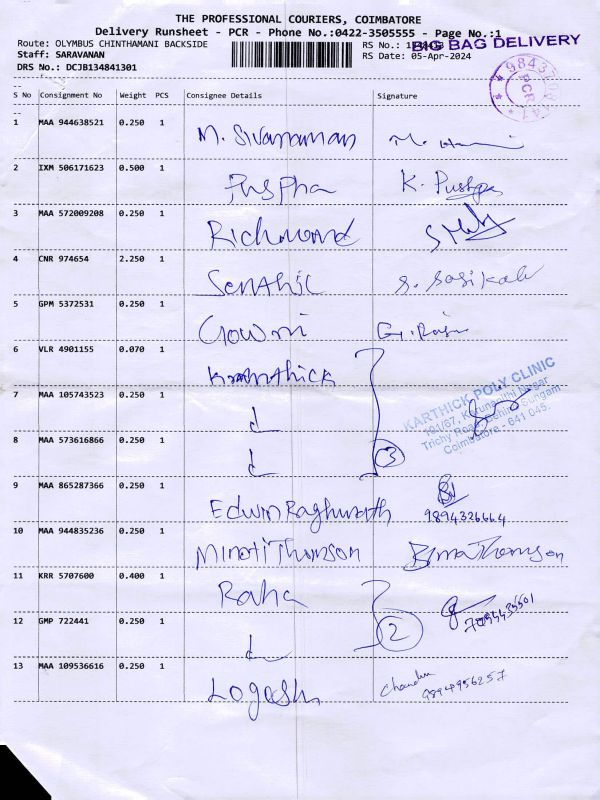 THE PROFESSIONAL COURIERS, COIMBATORE
Delivery Runsheet - PCR - Phone No.:0422-3505555 - Page No.:1
Route: OLYMBUS CHINTHAMANI BACKSIDE RS No.: BIG BAG DELIVERY
Staff: SARAVANAN RS Date: 05-Apr-2024
DRS No.: DCJB134841301
PCR
S No Consignment No Weight PCS Consignee Details Signature
1 MAA 944638521 0.250 1 M. Sivaraman
2 IXM 506171623 0.500 1 Puspha K. Puspha
3 MAA 572009208 0.250 1 Richmond
4 CNR 974654 2.250 1 Senthil S. Sasikala
5 GPM 5372531 0.250 1 Gowri
6 VLR 4901155 0.070 1 Karthick
7 MAA 105743523 0.250 1
KARTHICK POLY CLINIC
Coimbatore - 641 045.
8 MAA 573616866 0.250 1 3
9 MAA 865287366 0.250 1 Edwin Raghunath 9894326664
10 MAA 944835236 0.250 1 Minoti Thomson
11 KRR 5707600 0.400 1 Raha
12 GMP 722441 0.250 1 2
13 MAA 109536616 0.250 1 Logesh Chandru
9894956257